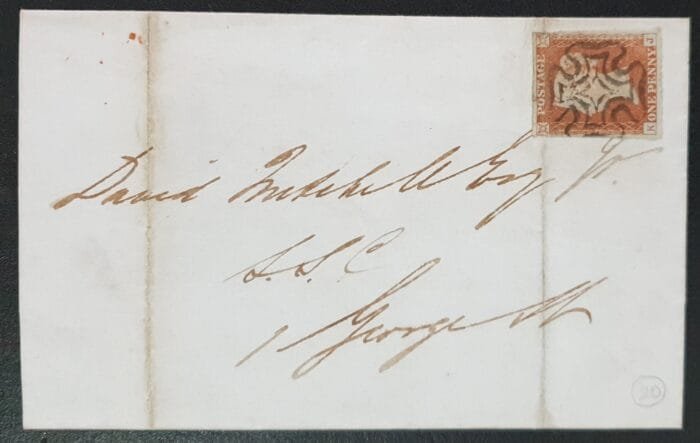 POSTAGE
ONE PENNY
J
K
David Mitchell Esq Jr.
S. S. C
1 George St
20